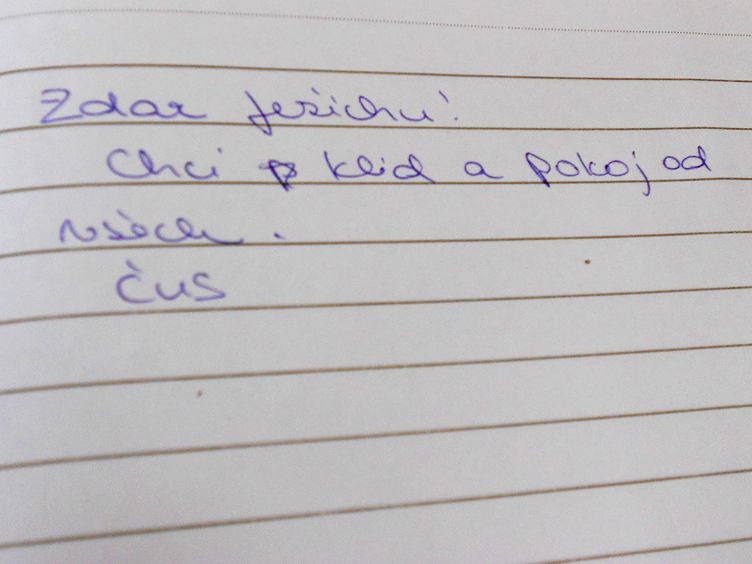 Zdar Ježíchu!
Chci klid a pokoj od
všech.
Čus